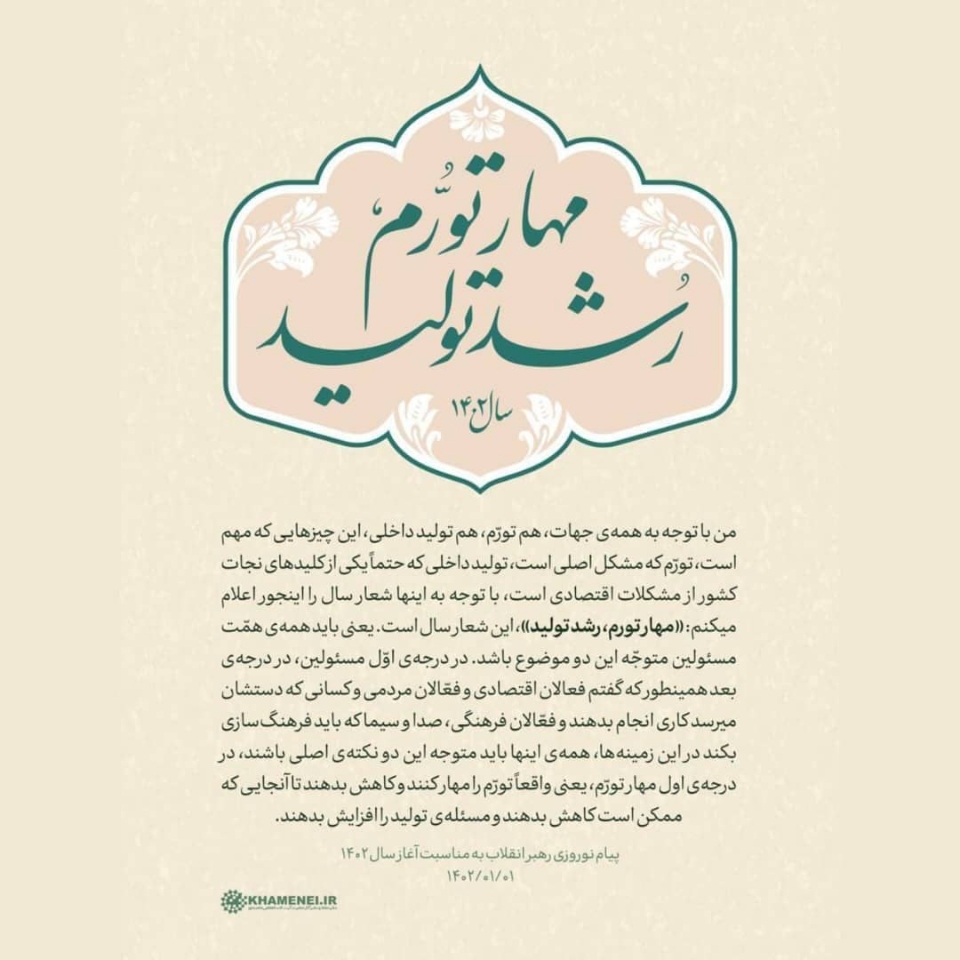 مهار تورُّم
رُشد تولید
سال ۱۴۰۲
من با توجه به همه‌ی جهات، هم تورّم، هم تولید داخلی، این چیزهایی که مهم
است، تورّم که مشکل اصلی است، تولید داخلی که حتماً یکی از کلیدهای نجات
کشور از مشکلات اقتصادی است، با توجه به اینها شعار سال را اینجور اعلام
میکنم: «مهار تورم، رشد تولید»، این شعار سال است. یعنی باید همه‌ی همّت
مسئولین متوجّه این دو موضوع باشد. در درجه‌ی اوّل مسئولین، در درجه‌ی
بعد همینطور که گفتم فعالان اقتصادی و فعّالان مردمی و کسانی که دستشان
میرسد کاری انجام بدهند و فعّالان فرهنگی، صدا و سیما که باید فرهنگ سازی
بکند در این زمینه‌ها، همه‌ی اینها باید متوجه این دو نکته‌ی اصلی باشند، در
درجه‌ی اول مهار تورّم، یعنی واقعاً تورّم را مهار کنند و کاهش بدهند تا آنجایی که
ممکن است کاهش بدهند و مسئله‌ی تولید را افزایش بدهند.
پیام نوروزی رهبر انقلاب به مناسبت آغاز سال ۱۴۰۲
۱۴۰۲/۰۱/۰۱
KHAMENEI.IR